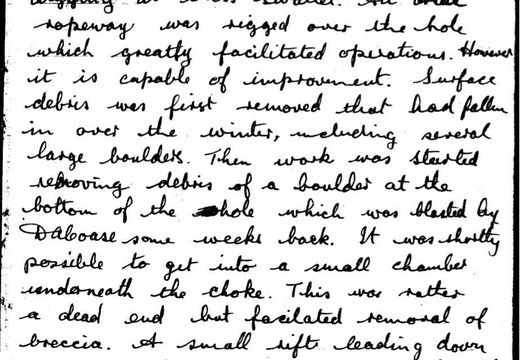 ropeway was rigged over the hole
which greatly facilitated operations. However
it is capable of improvement. Surface
debris was first removed that had fallen
in over the winter, including several
large boulders. Then work was started
removing debris of a boulder at the
bottom of the hole which was blasted by
some weeks back. It was shortly
possible to get into a small chamber
underneath the choke. This was rather
a dead end but facilated removal of
breccia. A small rift leading down